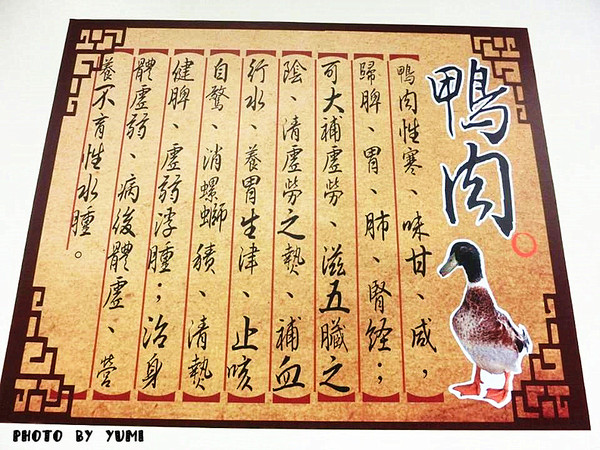 鴨肉
鴨肉性寒、味甘、咸，
歸脾、胃、肺、腎經；
可大補虛勞、滋五臟之
陰、清虛勞之熱、補血
行水、養胃生津、止咳
自驚、消螺螄積、清熱
健脾、虛弱浮腫；治身
體虛弱、病後體虛、營
養不育性水腫。
PHOTO BY YUMI